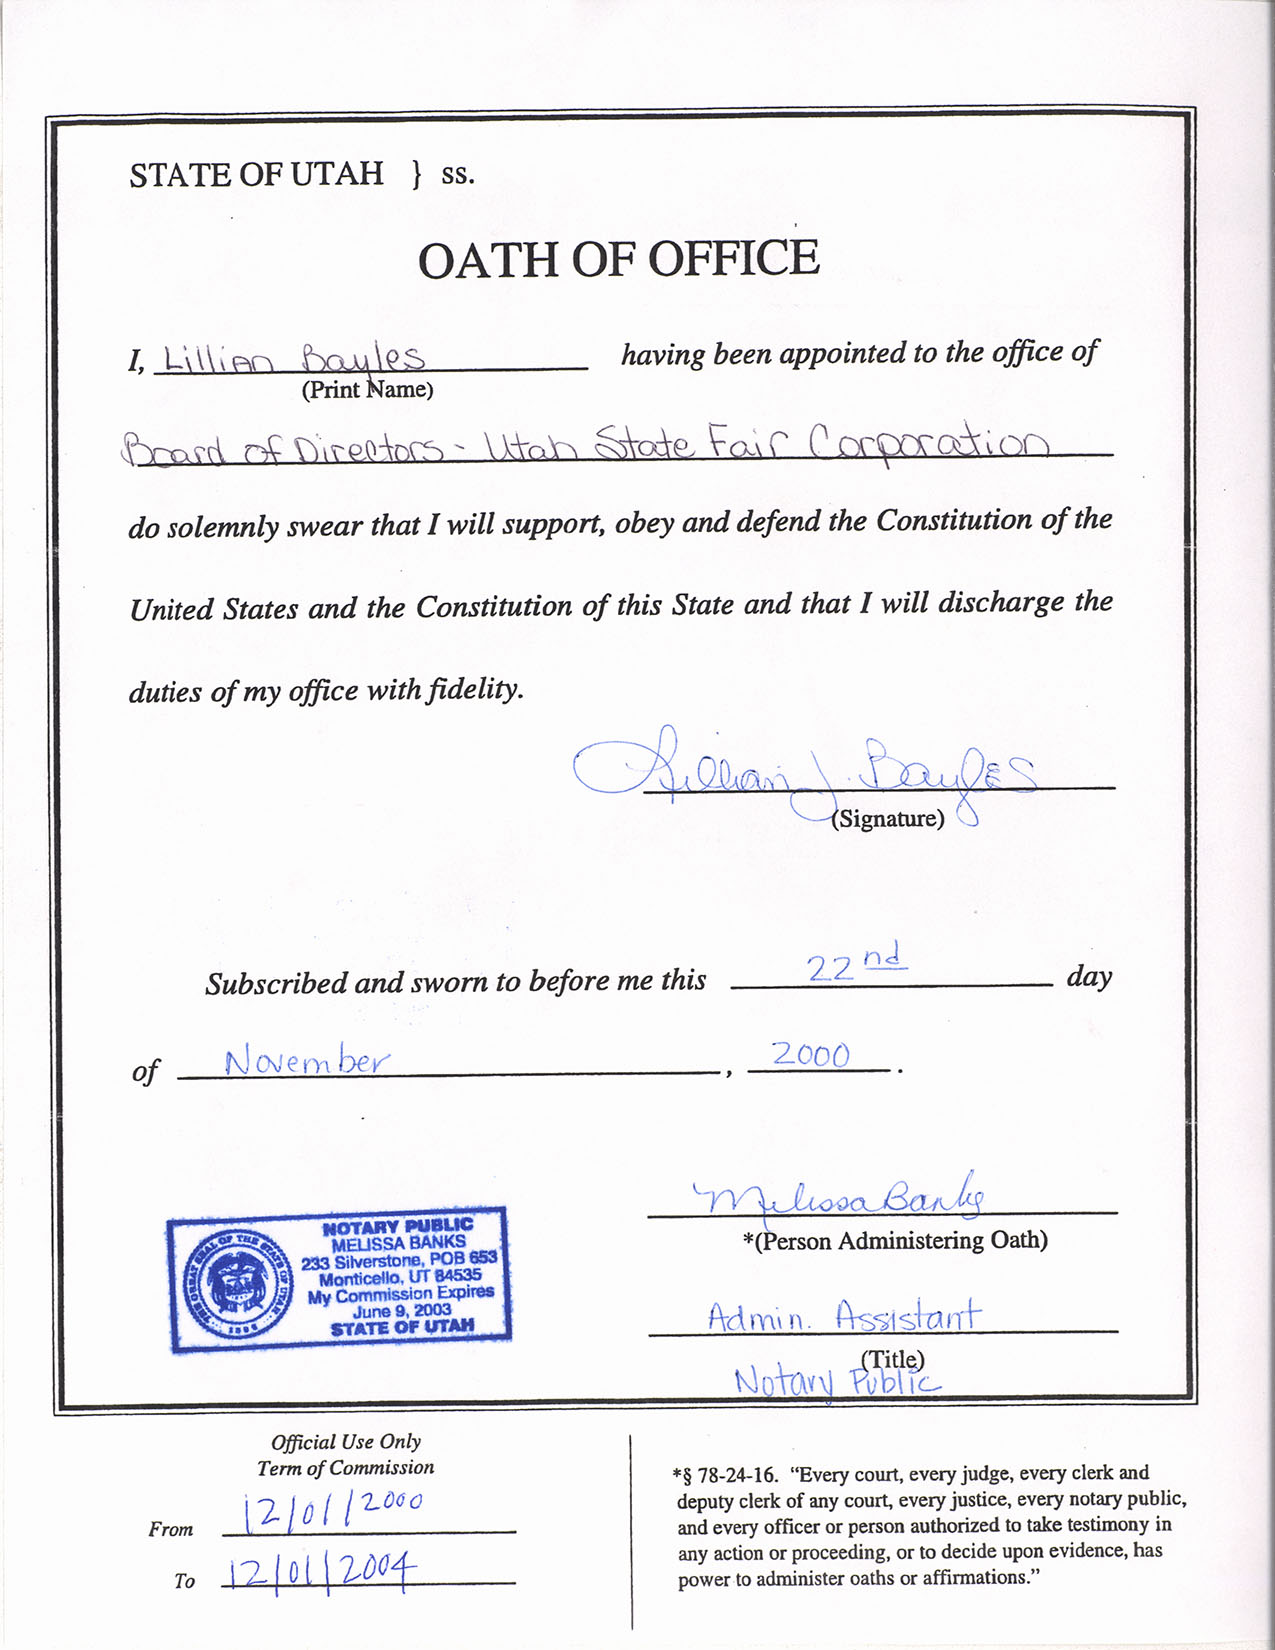 STATE OF UTAH } ss.
OATH OF OFFICE
I, Lillian Bayles having been appointed to the office of
(Print Name)
Board of Directors - Utah State Fair Corporation
do solemnly swear that I will support, obey and defend the Constitution of the
United States and the Constitution of this State and that I will discharge the
duties of my office with fidelity.
Lillian J. Bayles
(Signature)
Subscribed and sworn to before me this 22nd day
of November, 2000.
Melissa Banks
*(Person Administering Oath)
Admin. Assistant
(Title)
Notary Public
THE GREAT SEAL OF THE STATE OF UTAH
1896
NOTARY PUBLIC
MELISSA BANKS
233 Silverstone, POB 653
Monticello, UT 84535
My Commission Expires
June 9, 2003
STATE OF UTAH
Official Use Only
Term of Commission
From 12/01/2000
To 12/01/2004
*§ 78-24-16. “Every court, every judge, every clerk and
deputy clerk of any court, every justice, every notary public,
and every officer or person authorized to take testimony in
any action or proceeding, or to decide upon evidence, has
power to administer oaths or affirmations.”